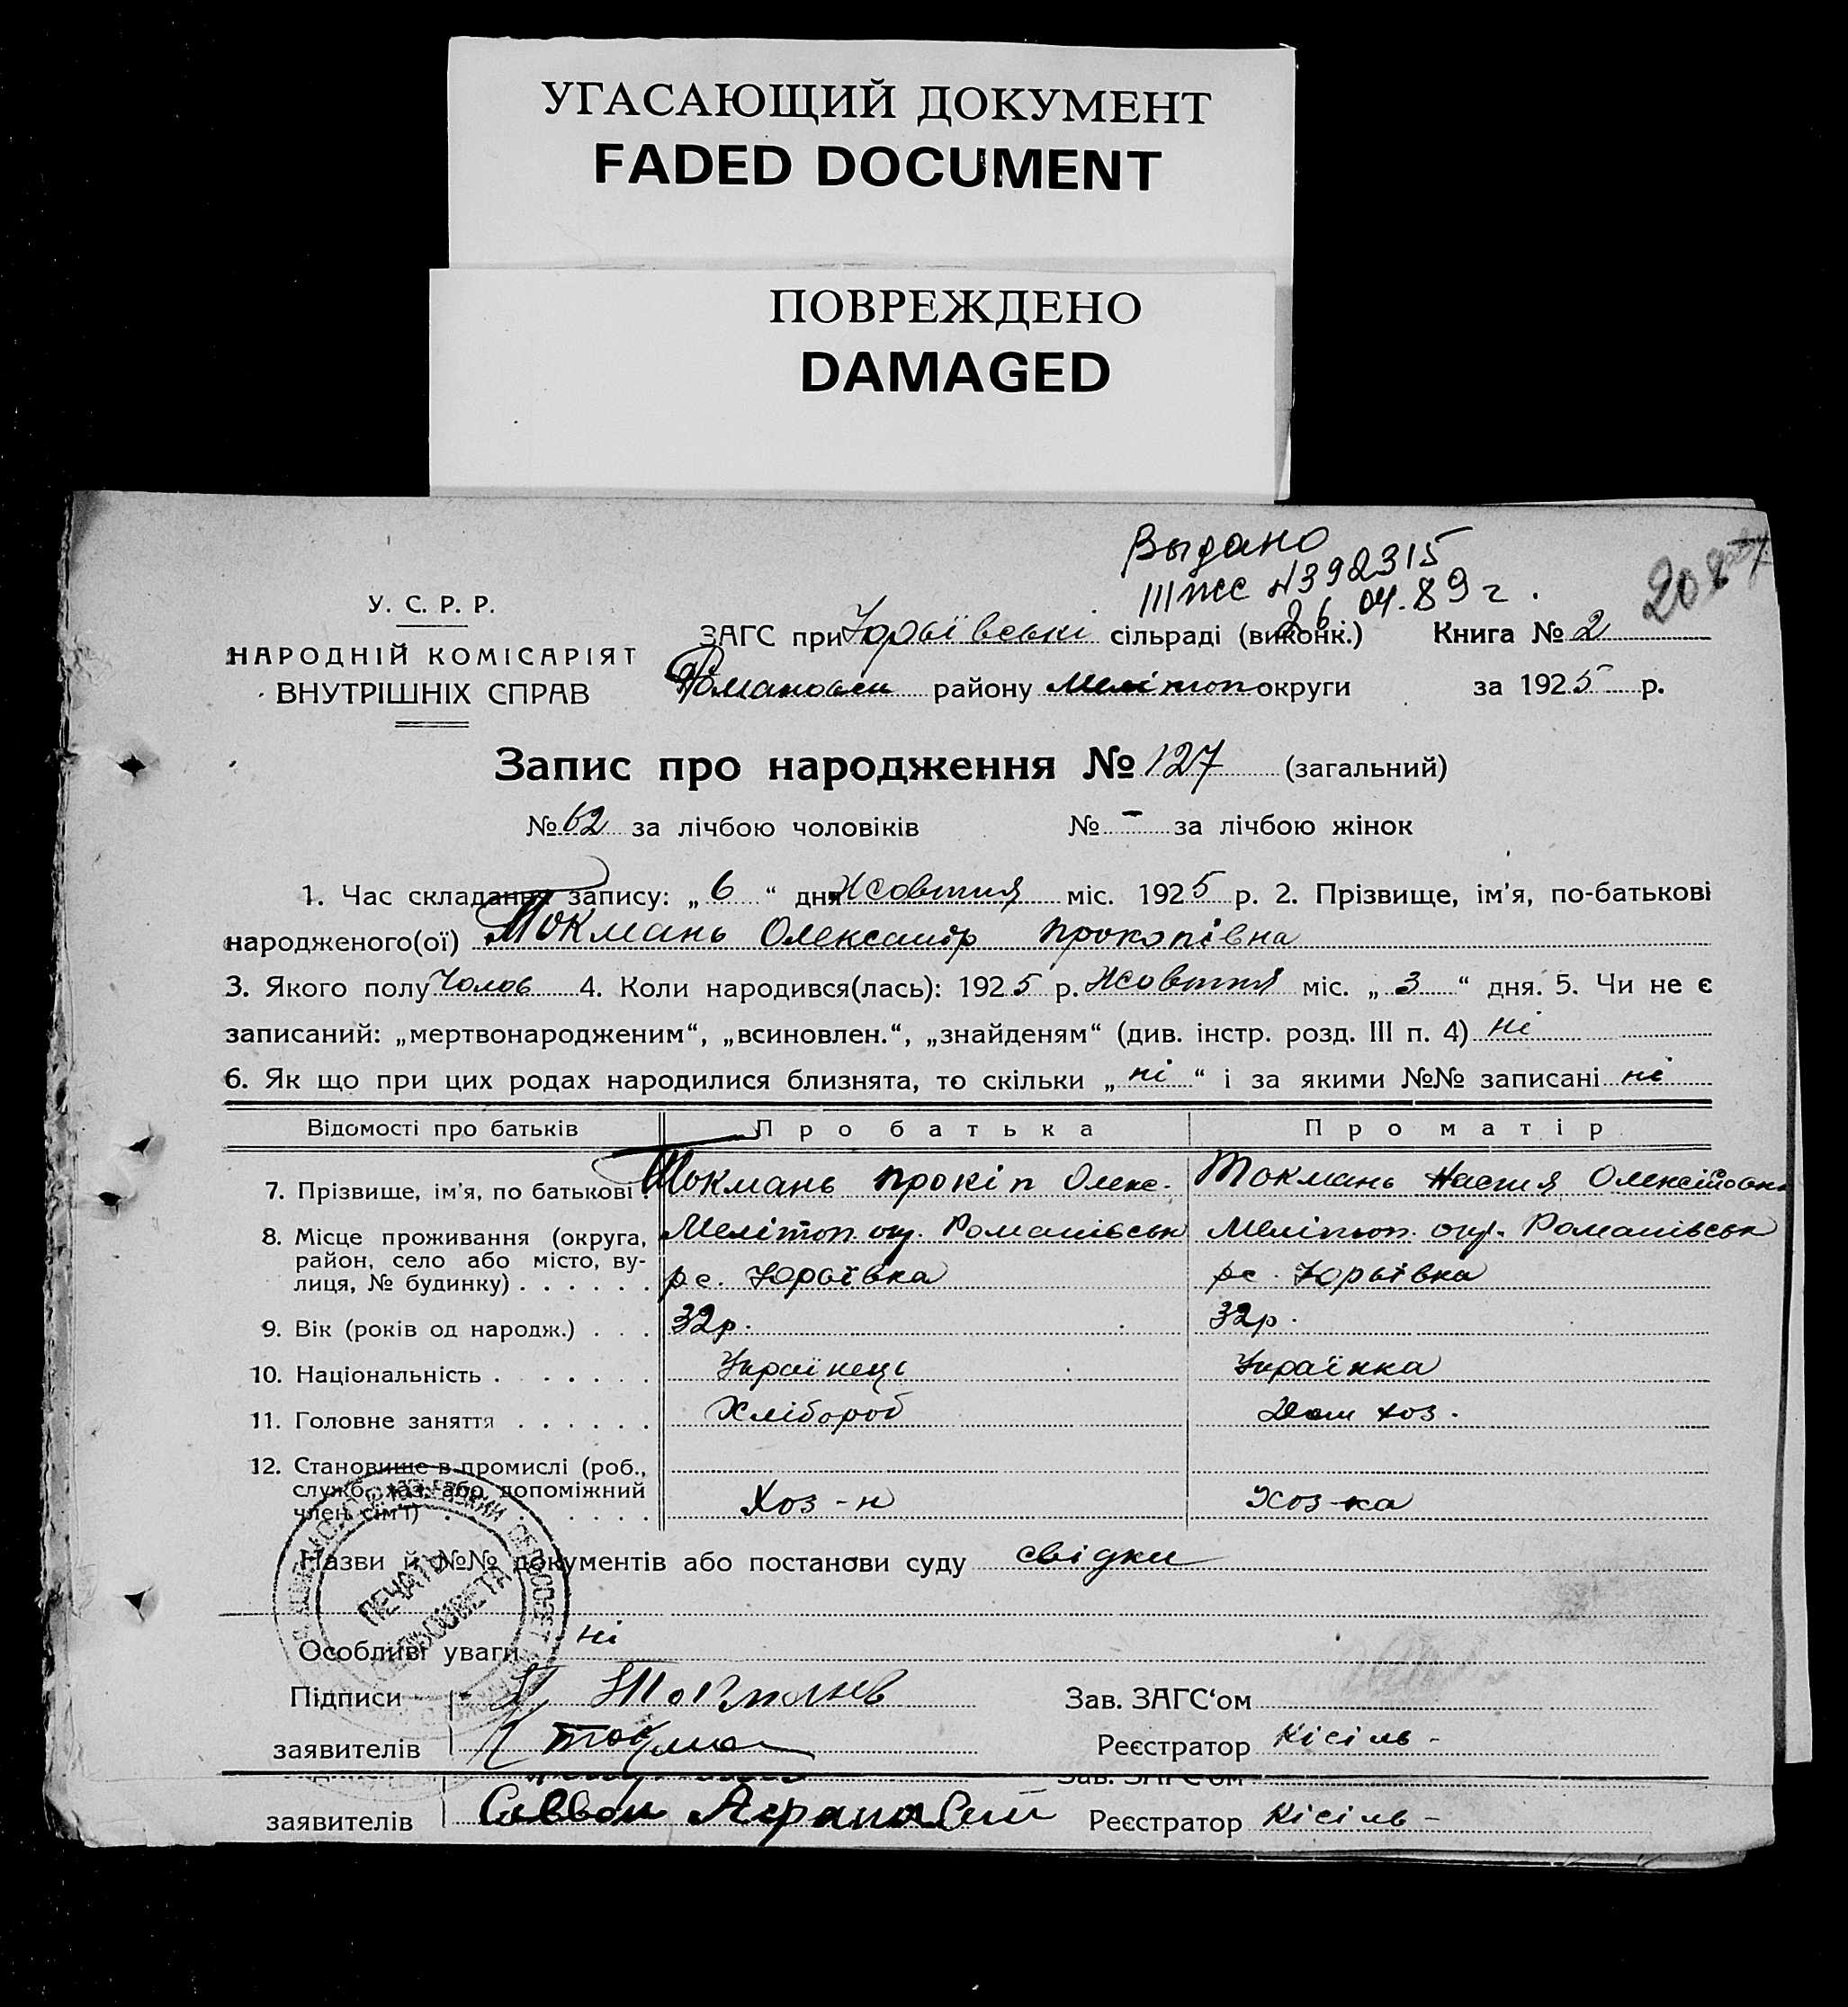 УГАСАЮЩИЙ ДОКУМЕНТ
FADED DOCUMENT
ПОВРЕЖДЕНО
DAMAGED
Выдано
III жс N392315
26.04.89 г.
У. С. Р. Р.
НАРОДНІЙ КОМІСАРІЯТ
ВНУТРІШНІХ СПРАВ
ЗАГС при Юрьївські сільраді (виконк.) Книга № 2
району Мелітоп округи за 1925 р.
Запис про народження № 127 (загальний)
№ 62 за лічбою чоловіків № - за лічбою жінок
1. Час складання запису: „ 6 “ дня Жовтня міс. 1925 р. 2. Прізвище, ім'я, по-батькові
народженого(ої) Токмань Олександр Прокопівна
3. Якого полу Чолов 4. Коли народився(лась): 1925 р. Жовтня міс. „ 3 “ дня. 5. Чи не є
записаний: „мертвонародженим“, „всиновлен.“, „знайденям“ (див. інстр. розд. III п. 4) ні
6. Як що при цих родах народилися близнята, то скільки „ ні “ і за якими №№ записані ні
Відомості про батьків Про батька Про матір
7. Прізвище, ім'я, по батькові Токмань Прокіп Олекс. Токмань Настя Олексіївна
8. Місце проживання (округа, Мелітоп. окр. Романівськ Мелітоп. окр. Романівськ
район, село або місто, ву-
лиця, № будинку) . . . . . . рс. Юрьївка рс. Юрьївка
9. Вік (років од народж.) . . . 32р. 32р.
10. Національність . . . . . . . Українець Українка
11. Головне заняття . . . . . . Хлібороб Дом хоз.
12. Становище в промислі (роб.,
служб., хаз. або допоміжний
член сім'ї) . . . . . . . Хоз-н Хоз-ка
Назви й №№ документів або постанови суду свідки
ПЕЧАТЬ
СЕЛЬСОВЕТА
Особливі уваги ні
Підписи Зав. ЗАГС‘ом
заявителів Реєстратор Кісіль -
Зав. ЗАГС‘ом
заявителів Реєстратор Кісіль -